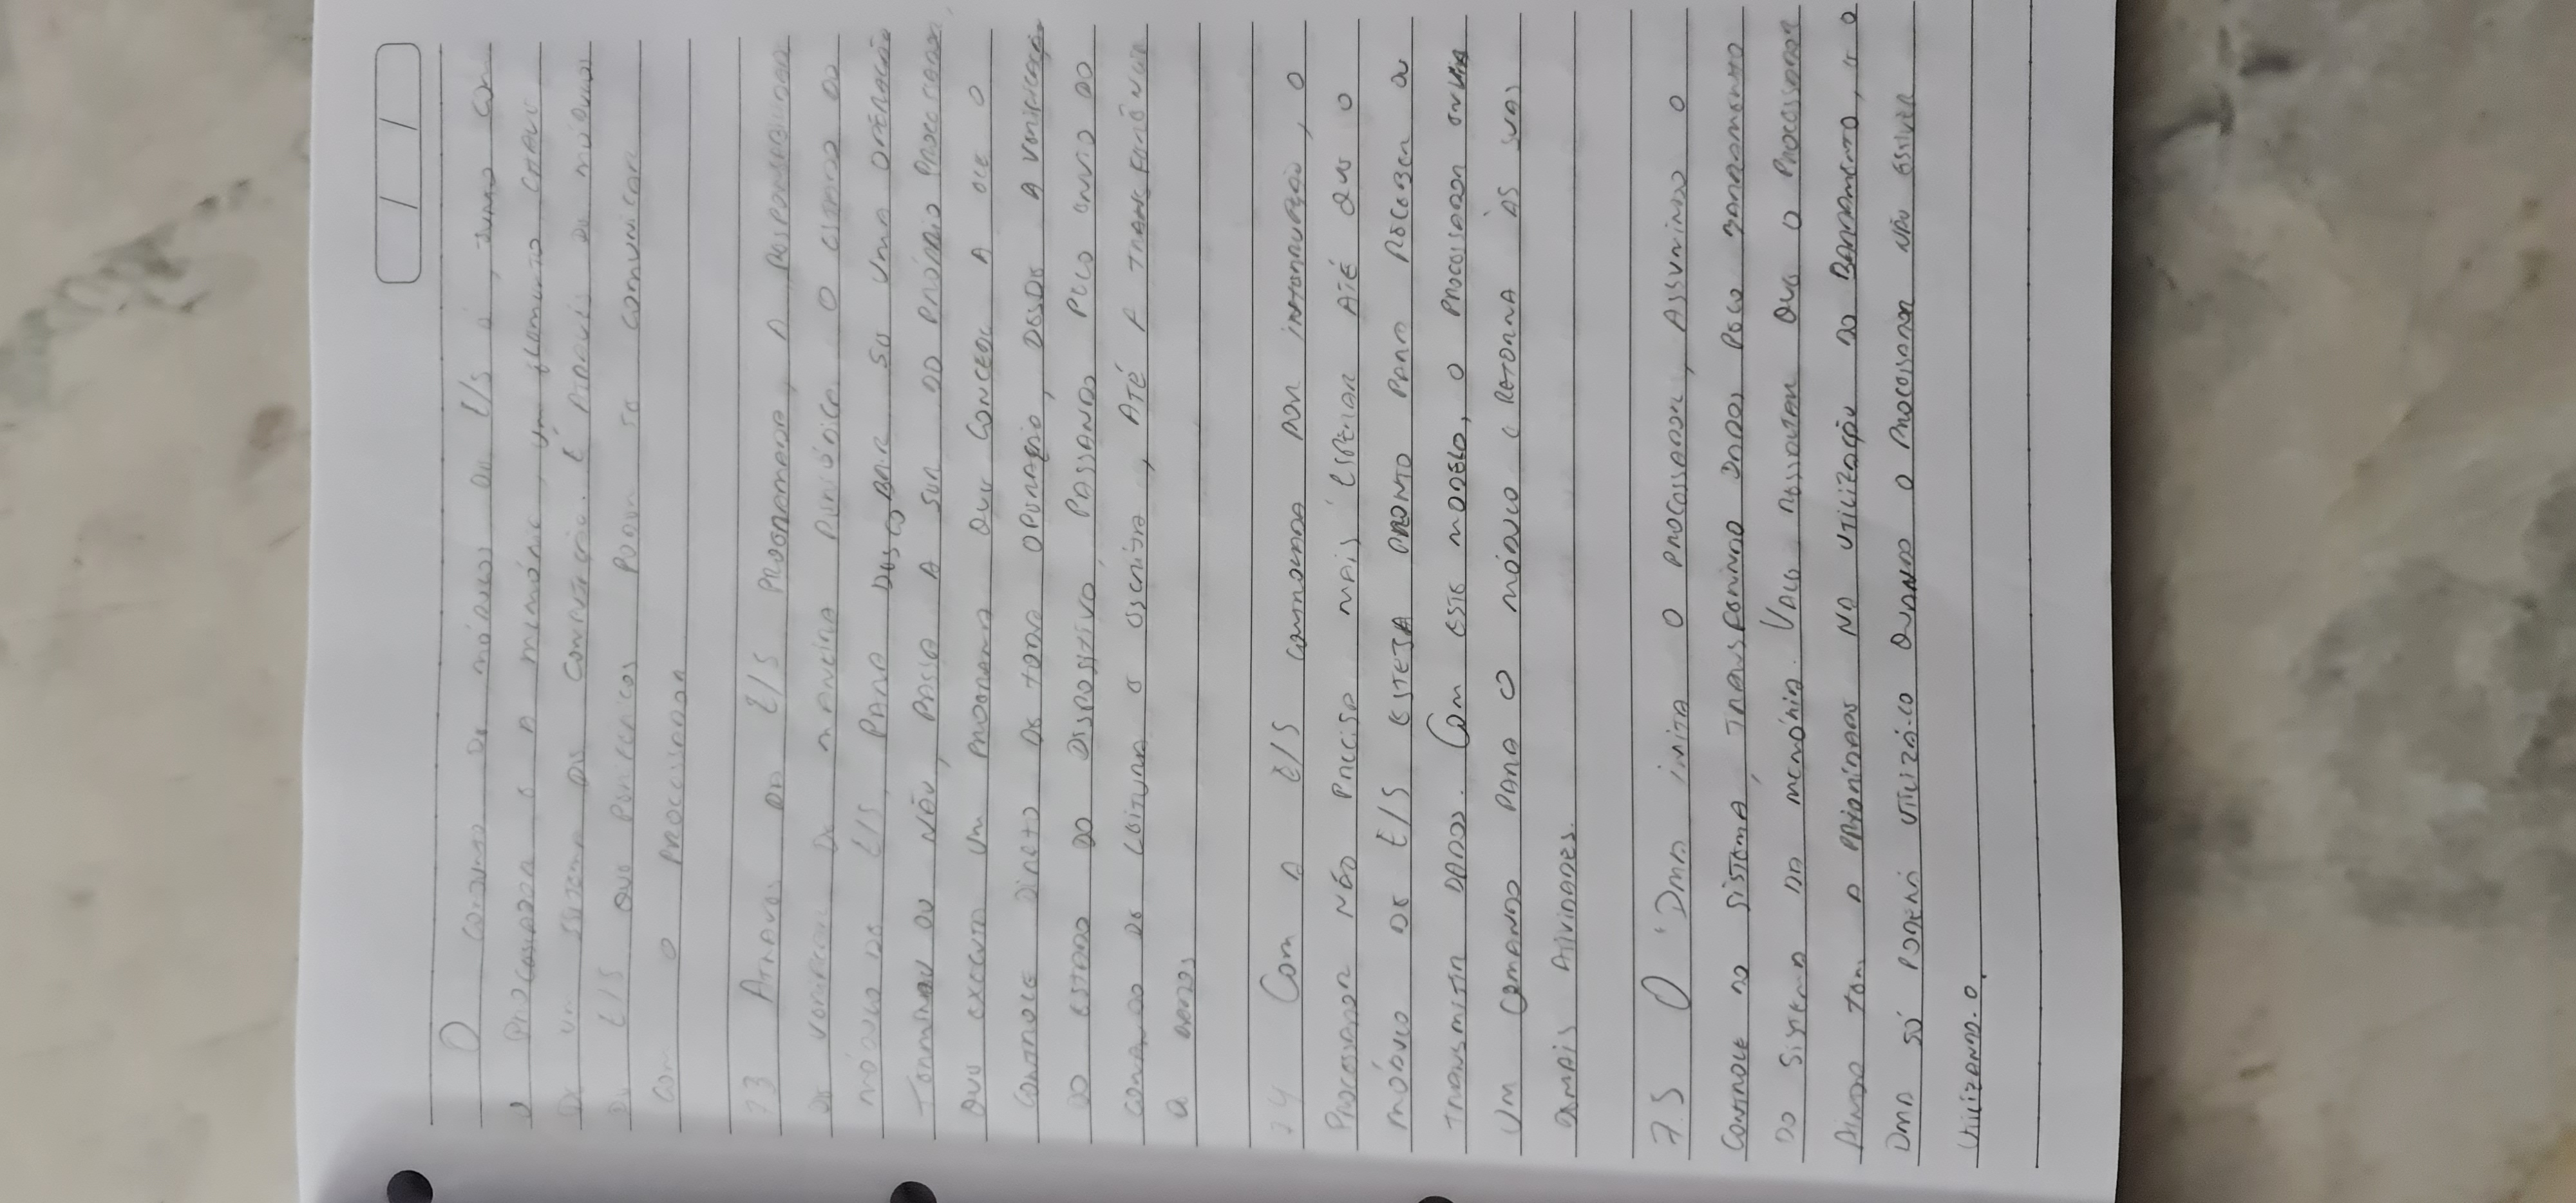 O conjunto de módulos de E/S é, junto com
o processador e a memória, um elemento chave
de um sistema de computação. É através do módulos
de E/S que periféricos podem se comunicar
com o processador
73 Através da E/S programada, a responsabilidade
de verificar de maneira periódica o estado do
módulo de E/S, para descobrir se uma operação
terminou ou não, passa a ser do próprio processador
que executa um programa que concede a ele o
controle direto de toda operação, desde a verificação
do estado do dispositivo, passando pelo envio do
comando de leitura e escrita, até a transferência
a
74 Com a E/S controlada por interrupção, o
processador não precisa mais esperar até que o
módulo de E/S esteja pronto para receber ou
transmitir dados. Com este modelo, o processador envia
um comando para o módulo e retorna às suas
demais atividades.
7.5 O DMA imita o processador, assumindo o
controle do sistema, transferindo dados pelo barramento
do sistema da memória. Vale ressaltar que o processador
ainda tem a prioridade na utilização do barramento, e o
DMA só poderá utilizá-lo quando o processador não estiver
utilizando-o.